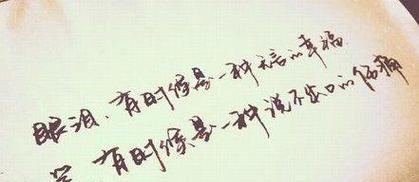 眼泪，有时候是一种无言的幸福
笑，有时候是一种说不出口的伤痛